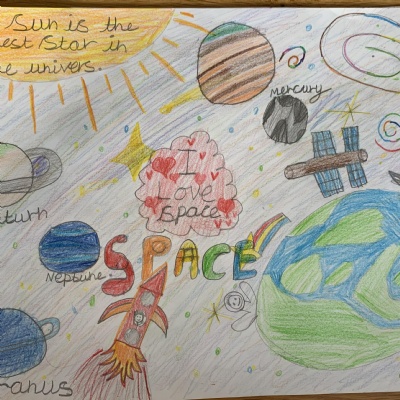 Sun is the
est Star in
e univers.
mercury
I
Love
Space
aturn
Neptune
SPACE
ranus